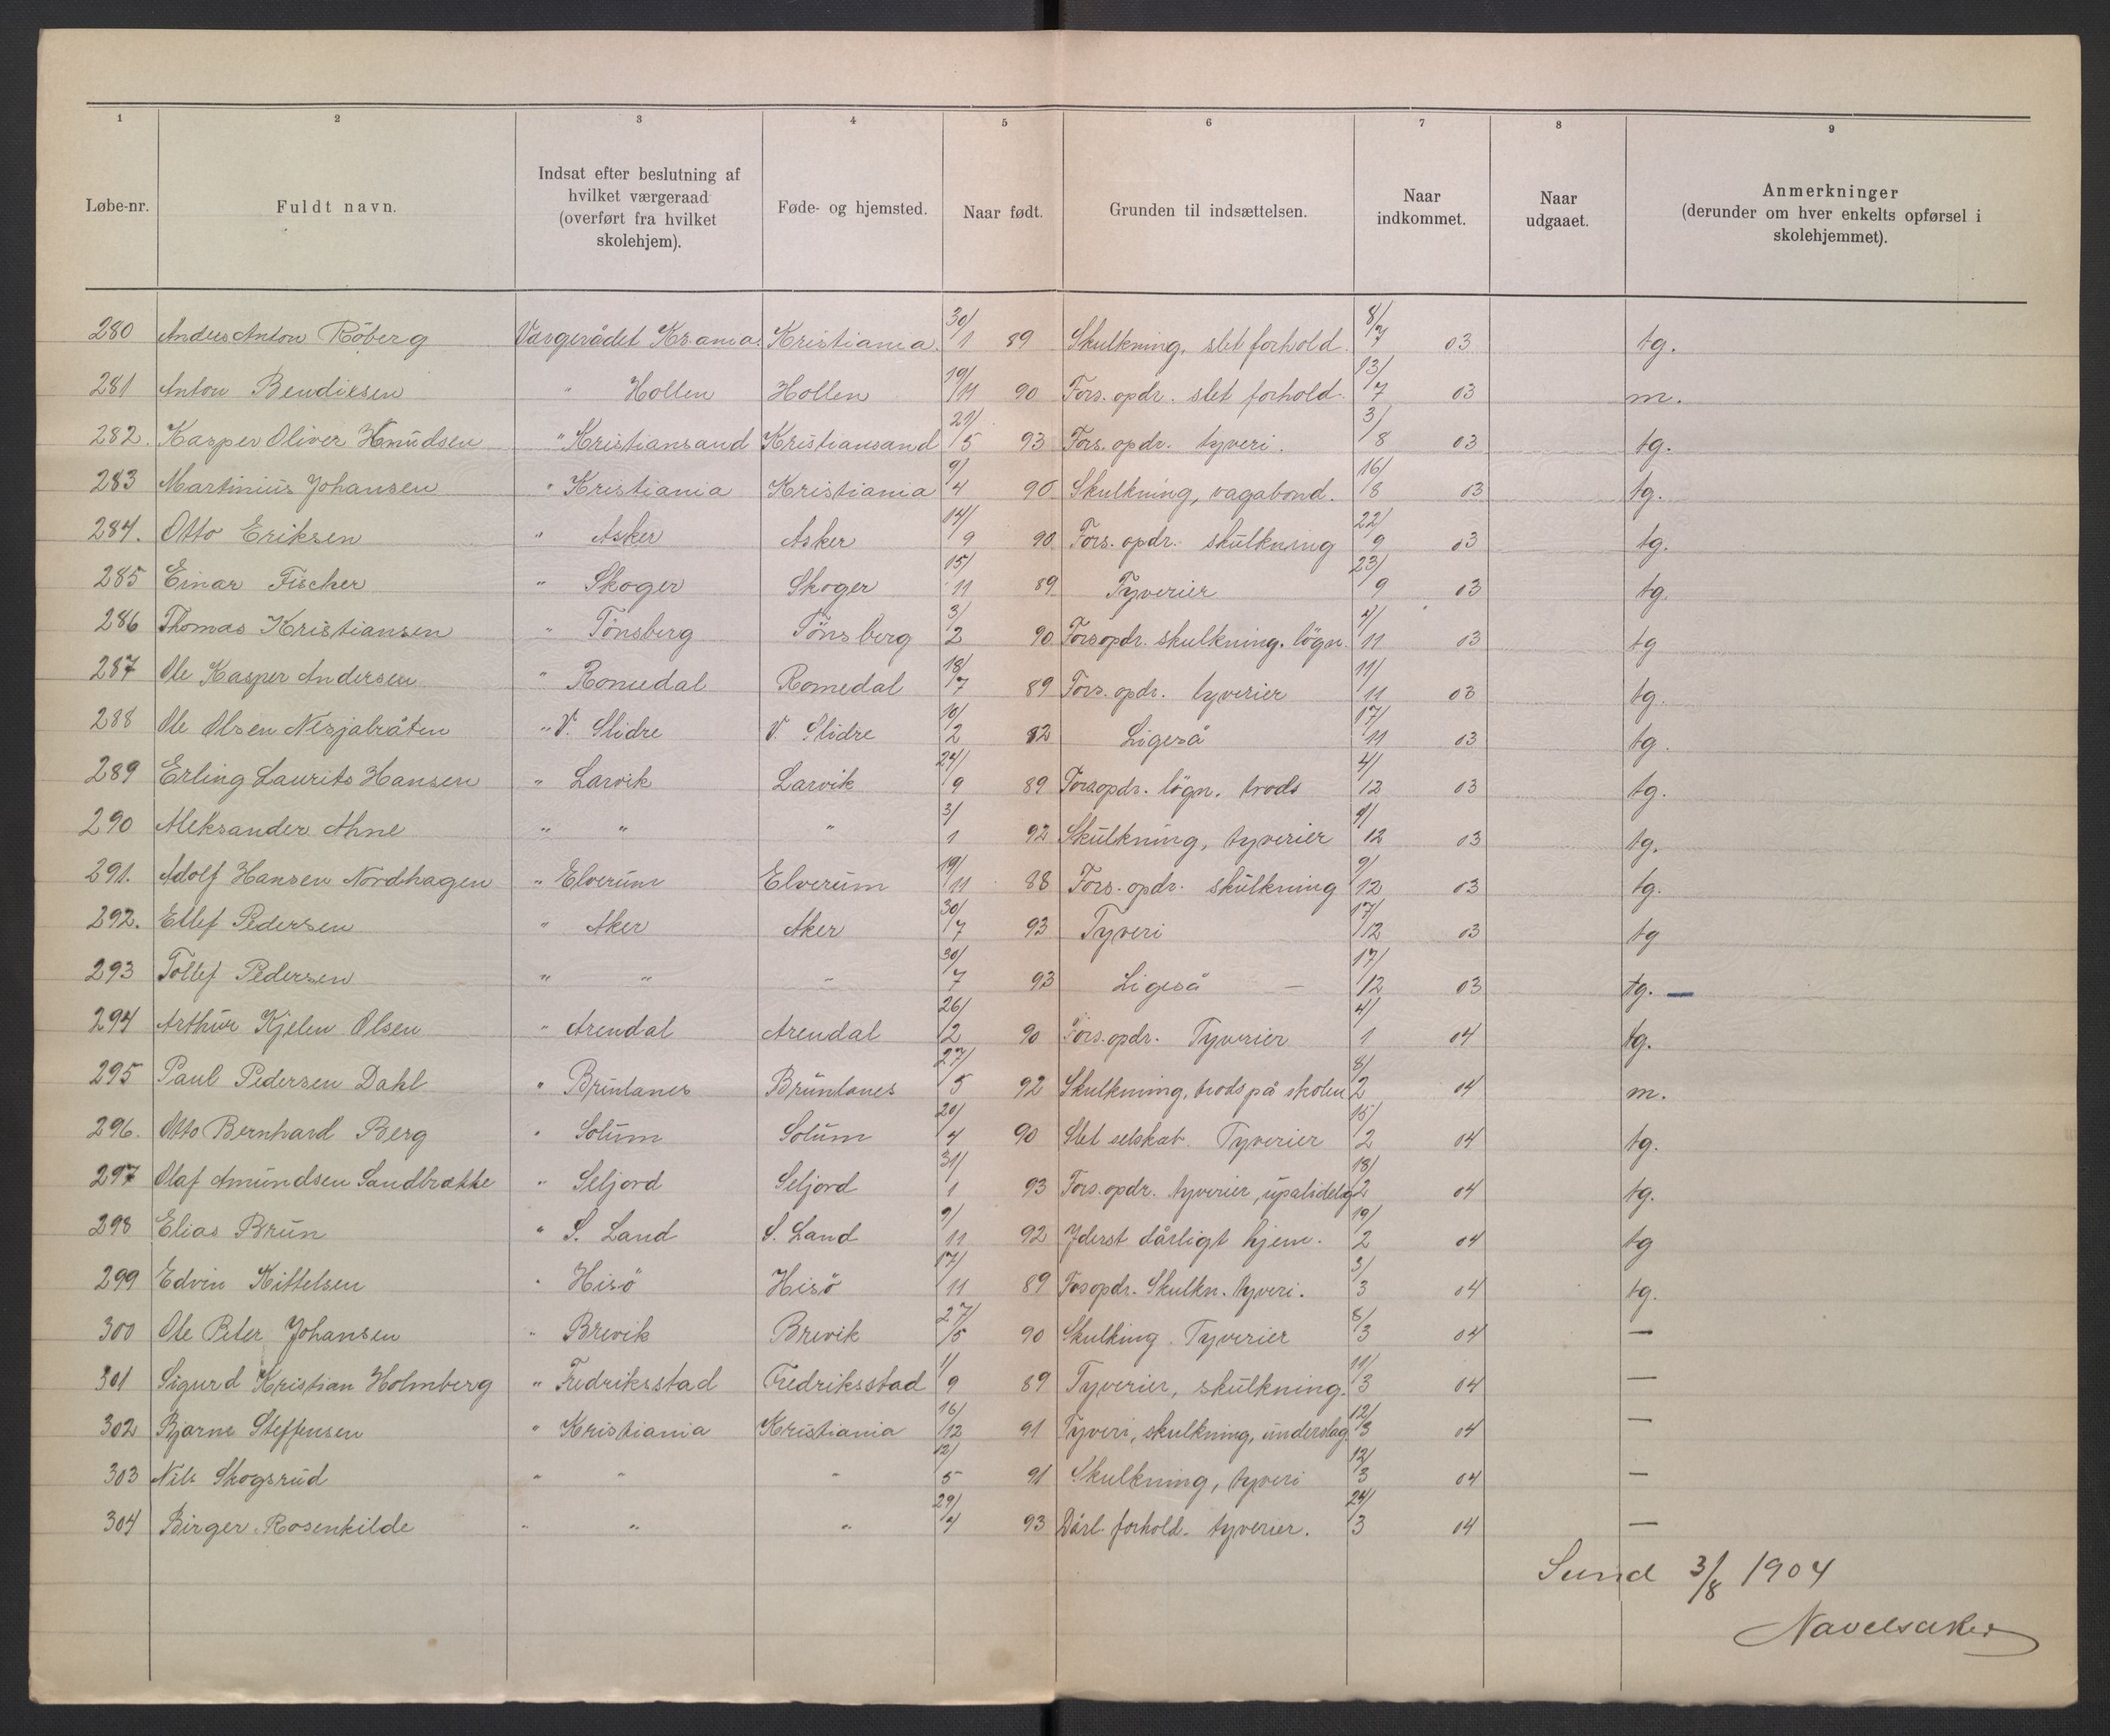 1 2 3 4 5 6 7 8 9
Løbe-nr. Fuldt navn. Indsat efter beslutning af hvilket værgeraad (overført fra hvilket skolehjem). Føde- og hjemsted. Naar født. Grunden til indsættelsen. Naar indkommet. Naar udgaaet. Anmerkninger (derunder om hver enkelts opførsel i skolehjemmet).
280 Anders Anton Röberg Værgerådet Kr.ania. Kristiania. 30/1 89 Skulkning, slet forhold. 8/7 03 tg.
281 Anton Bendixsen " Hollen Hollen 19/11 90 Fors. opdr. slet forhold. 13/7 03 m.
282. Kasper Oliver Knudsen " Kristiansand Kristiansand 5 93 Fors. opdr. tyveri. 3/8 03 tg.
283 Martinius Johansen " Kristiania Kristiania 9/4 90 Skulkning, vagabond. 16/8 03 tg.
284. Otto Eriksen " Asker Asker 14/9 90 Fors. opdr. skulkning 22/9 03 tg.
285 Einar Fischer " Skoger Skoger 15/11 89 Tyverier 23/9 03 tg.
286 Thomas Kristiansen " Tönsberg Tönsberg 3/2 90 Forsopdr. skulkning. lögn. 11 03 tg
287 Ole Kasper Andersen " Romedal Romedal 18/7 89 Fors. opdr. tyverier 11/11 03 tg.
288 Ole Olsen " V. Slidre V. Slidre 10/2 82 Ligeså 17/11 03 tg.
289 Erling Laurits Hansen " Larvik Larvik 9 89 Forsopdr. lögn. trods 4/12 03 tg.
290 Aleksander Ahne " " " 3/1 92 Skulkning, tyverier 12 03 tg.
291. Adolf Hansen Nordhagen " Elverum Elverum 19/11 88 Fors. opdr. skulkning 9/12 03 tg.
292. Ellef Pedersen " Aker Aker 30/7 93 Tyveri 17/12 03 tg
293 Tollef Pedersen " " " 30/7 93 Ligeså — 17/12 03 tg. —
294 Arthur Kjelen Olsen " Arendal Arendal 26/2 90 Fors. opdr. Tyverier 4/1 04 tg.
295 Paul Pedersen Dahl " Brunlanes Brunlanes 27/5 92 Skulkning, trods på skolen 8/2 04 m.
296. Otto Bernhard Berg " Solum Solum 20/4 90 Slet selskab. Tyverier 15/2 04 tg.
297 Olaf Amundsen Sandbrække " Seljord Seljord 31/1 93 Fors. opdr. tyverier, upalidelg 18/2 04 tg.
298 Elias Brun " S. Land S. Land 9/11 92 Yderst dårligt hjem. 19/2 04 tg
299 Edvin Kittelsen " Hisö Hisö 17/11 89 Fosopdr. Skulkn. tyveri. 3/3 04 tg.
300 Ole Peter Johansen " Brevik Brevik 27/5 90 Skulking. Tyverier 8/3 04 —
301 Sigurd Kristian Holmberg " Fredriksstad Fredriksstad 1/9 89 Tyverier, skulkning. 11/3 04 —
302 Bjarne Steffensen " Kristiania Kristiania 16/12 91 Tyveri, skulkning, underslag. 12/3 04 —
303 Nils Skogsrud " " " 12/5 91 Skulkning, tyveri 12/3 04 —
304 Birger Rosenkilde " " " 29/4 93 Dårl. forhold. tyverier. 24/3 04 —
Sund 3/8 1904
Navelsaker